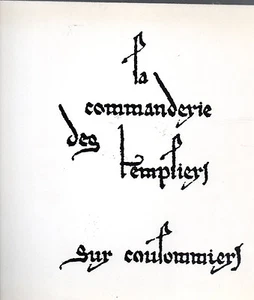 la
commanderie
des
templiers
sur coulommiers